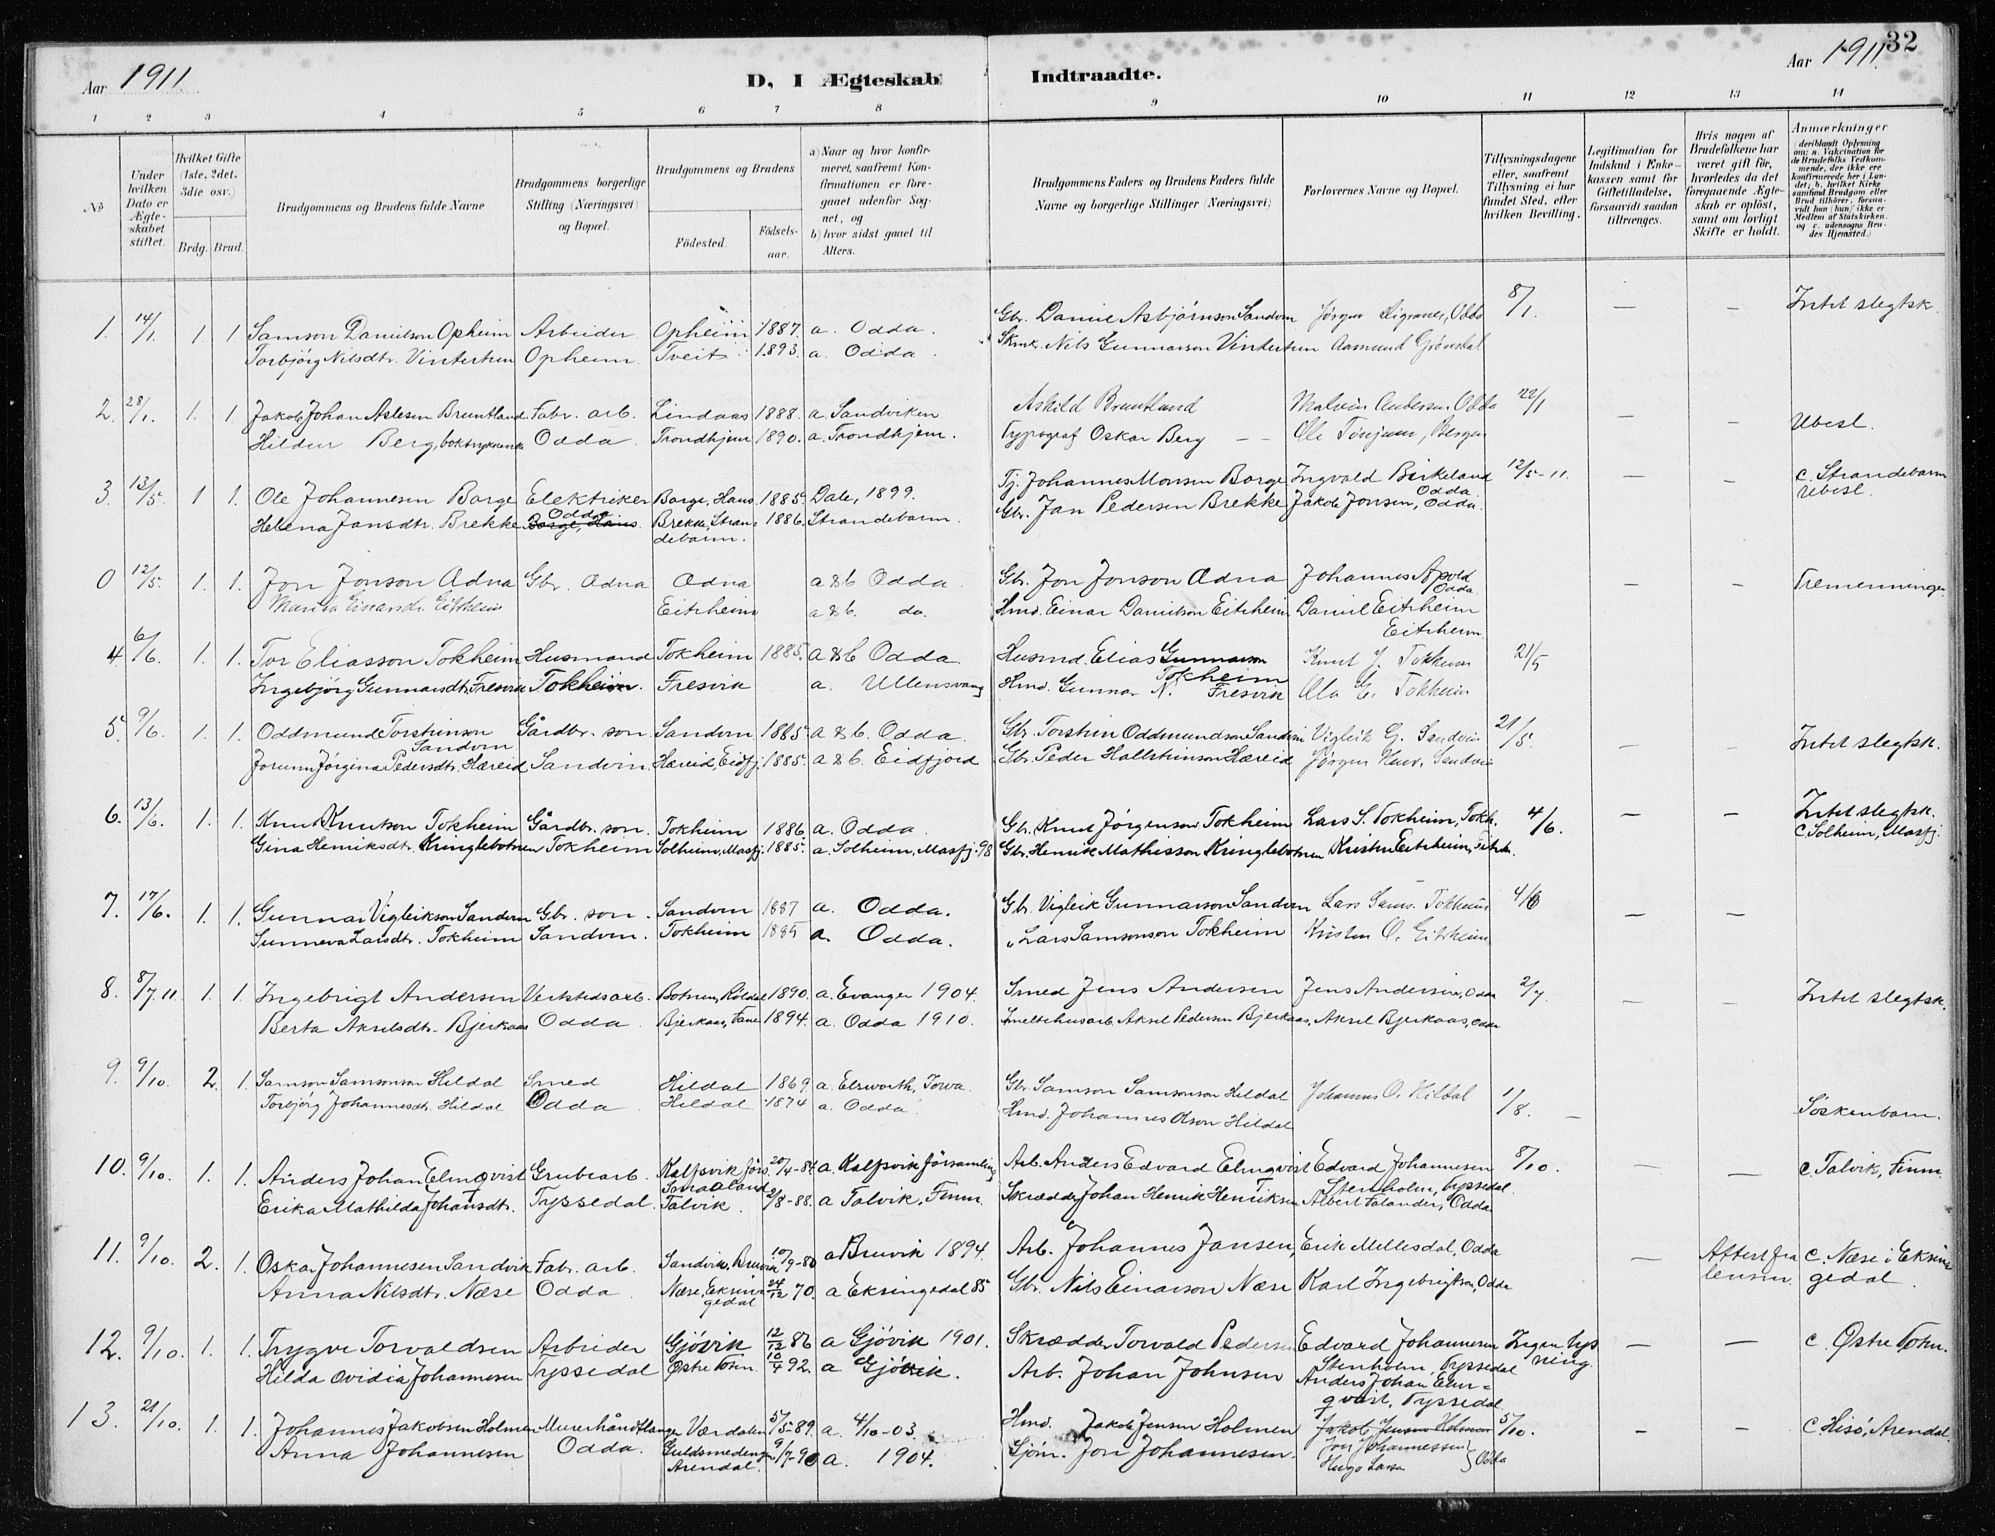 32
Aar 1911. D, I Ægteskab Indtraadte. Aar 1911.
1 2 3 4 5 6 7 8 9 10 11 12 13 14
No
Under hvilken Dato er Ægteskabet stiftet.
Hvilket Gifte (1ste, 2det, 3die osv.)
Brdg. Brud.
Brudgommens og Brudens fulde Navne
Brudgommens borgerlige Stilling (Næringsvei) og Bopæl.
Brudgommens og Brudens
Födested. Födsels-aar.
a) Naar og hvor konfirmeret, saafremt Konfirmationen er foregaaet udenfor Sognet, og
b) hvor sidst gaaet til Alters.
Brudgommens Faders og Brudens Faders fulde Navne og borgerlige Stillinger (Næringsvei)
Forlovernes Navne og Bopæl.
Tillysningsdagene eller, saafremt Tillysning ei har fundet Sted, efter hvilken Bevilling.
Legitimation for Indskud i Enkekassen samt for Giftetilladelse, forsaavidt saadan tiltrænges.
Hvis nogen af Brudefolkene har været gift før, hvorledes da det foregaaende Ægteskab er opløst, samt om lovligt Skifte er holdt.
Anmærkninger (deriblandt Oplysning om: a. Vakcination for de Brudefolks Vedkommende, der ikke ere konfirmerede her i Landet; b. hvilket Kirkesamfund Brudgom eller Brud tilhörer, forsaavidt han (hun) ikke er Medlem af Statskirken, og c. udensogns Brudes Hjemsted.)
1. 14/1. 1. 1. Samson Danielson Opheim Arbeider Opheim 1887. a. Odda. Gbr. Daniel Asbjørnson Sandven Jørgen Digranes, Odda 8/1. — — Intet slegtsk.
Torbjörg Nilsdtr. Vintertun Opheim. Tveit 1893. a. Odda. Nils Gunnarson Vintertun Aamund Grönsdal
2. 28/1. 1. 1 Jakob Johan Aslesen Bruntland Fabr. arb. Lindaas 1888. a. Sandviken Askild Bruntland Malvin Andersen Odda 22/1 — — Ubesl.
Hildur Berg, Odda Trondhjem 1890. a. Trondhjem. Typograf Oskar Berg — — Ole Tönjum, Bergen
3. 13/5. 1 1. Ole Johannesen Borge Elektriker Borge, Haus 1885. Dale, 1899. Tj. Johannes Monsen Borge Ingvald Birkeland Odda 12/5-11. — — c. Strandebarm Ubesl.
Helena Jansdtr. Brekke Odda Borge, Haus Brekke, Strandebarm. 1886. Strandebarm. Gbr. Jan Pedersen Brekke Jakob Jonsen, Odda.
0 12/5. 1. 1. Jon Jonson Adna Gbr. Adna Adna a & b Odda. Gbr. Jon Jonson Adna Johannes Apold Odda — — Tremenninger
Marita Einarsdr. Eitrheim Eitrheim a & b. do. Hmd. Einar Danielson Eitrheim Daniel Eitrheim Eitrheim.
4. 6/6. 1. 1. Tor Eliasson Tokheim Husmand Tokheim 1885. a & b Odda Husmd. Elias Gunnarson Tokheim Knut J. Tokheim 21/5
Ingebjörg Gunnarsdtr. Fresvik Tokheim. Fresvik a. Ullensvang Hmd. Gunnar N. Fresvik Ola E. Tokheim
5. 9/6. 1. 1. Oddmund Torsteinson Sandven Gårdbr. son Sandven 1885. a & b. Odda. Gbr. Torstein Oddmundson Sandven Vigleik G. Sandven 21/5. — — Intet slegtsk.
Jorunn Jörgina Pedersdtr. Hæreid Sandven. Hæreid, Eidfj. 1885. a & b. Eidfjord Gbr. Peder Hallsteinson Hæreid Jørgen Sandven
6. 13/6. 1. 1. Knut Knutson Tokheim Gårdbr. son. Tokheim 1886. a. Odda. Gbr. Knut Jørgenson Tokheim Lars S. Tokheim, Tokh. 4/6. — — Intet slegtsk. c. Solheim, Masfj.
Gina Henriksdtr. Kringlebotnen Tokheim Solheim, Masfj. 1885. a. Solheim, Masfj. 98 Gbr. Henrik Mathisson Kringlebotnen Kristen Eitrheim, Eitrh.
7. 17/6. 1. 1. Gunnar Vigleikson Sandven Gbr. son. Sandven 1887 a. Odda. Gbr. Vigleik Gunnarson Sandven Lars Sams. Tokheim 4/6 — —
Sunneva Larsdtr. Tokheim Sandven. Tokheim 1885 a. Odda. „ Lars Samsonson Tokheim Kristen O. Eitrheim
8. 8/7.11. 1. 1. Ingebrigt Andersen Verkstedsarb. Botnen, Röldal 1890. a. Evanger 1904. Smed Jens Andersen Jens Andersen, Odda 2/7. — — Intet slegtsk.
Berta Akselsdtr. Bjerkaas Odda. Bjerkaas, 1894. a. Odda 1910. Smeltehusarb. Aksel Pedersen Bjerkaas, Aksel Bjerkaas, Odda
9. 9/10. 2. 1. Samson Samsonson Hildal Smed Hildal 1869. a. Elsworth, Iowa. Gbr Samson Samsonson Hildal Johannes O. Hildal 1/8. — Söskenbarn.
Torbjörg Johannesdtr. Hildal Odda Hildal. 1874 a. Odda. Hmd. Johannes Olson Hildal
10. 9/10. 1. 1. Anders Johan Elmqvist Grubearb. Kalfsvik förs. Smaaland 20/4-84. a. Kalfsvik församling Arb. Anders Edvard Elmqvist Edvard Johannesen Stenholm, Tyssedal. 8/10. — — c. Talvik, Finm.
Erika Mathilda Johansdtr. Tyssedal. Talvik. 2/8-88. a. Talvik, Finm. Skrædder Johan Henrik Henriksen Albert Falander, Odda
11. 9/10. 2. 1. Oskar Johannesen Sandvik Fabr. arb. Sandvik, Bruvik 10/9-80 a Bruvik 1894. Arb. Johannes Jansen, Erik Mellesdal, Odda — c. Næse i Eksingedal.
Anna Nilsdtr. Næse Odda. Næse, Eksingedal 24/12 70. a Eksingedal 85 Gbr. Nils Einarson Næse Karl Ingebrigtsen, Odda
12. 9/10. 1. 1. Trygve Torvaldsen Arbeider Gjövik 12/12 86 a Gjövik 1901. Skrædder Torvald Pedersen Edvard Johannesen Stenholm Tyssedal Ingen lysning. — — c. Østre Toten.
Hilda Ovidia Johannesen Tyssedal Østre Toten. 10/4 92. a Gjövik. Arb. Johan Johnsen Anders Johan Elmqvist, Tyssedal.
13. 21/10. 1. 1. Johannes Jakobsen Holmen Murerhåndlanger Værdalen 5/5-89. a. 4/10-03. Hmd. Jakob Jensen Holmen Jakob Jensen Holmen 5/10. — — c Hisö, Arendal.
Anna Johannesen Odda. Guldsmedengen Arendal. 9/7-90 a. 1904. Sjöm. Jon Johannesen. Jon Johannessen Hugo Larsen } Odda